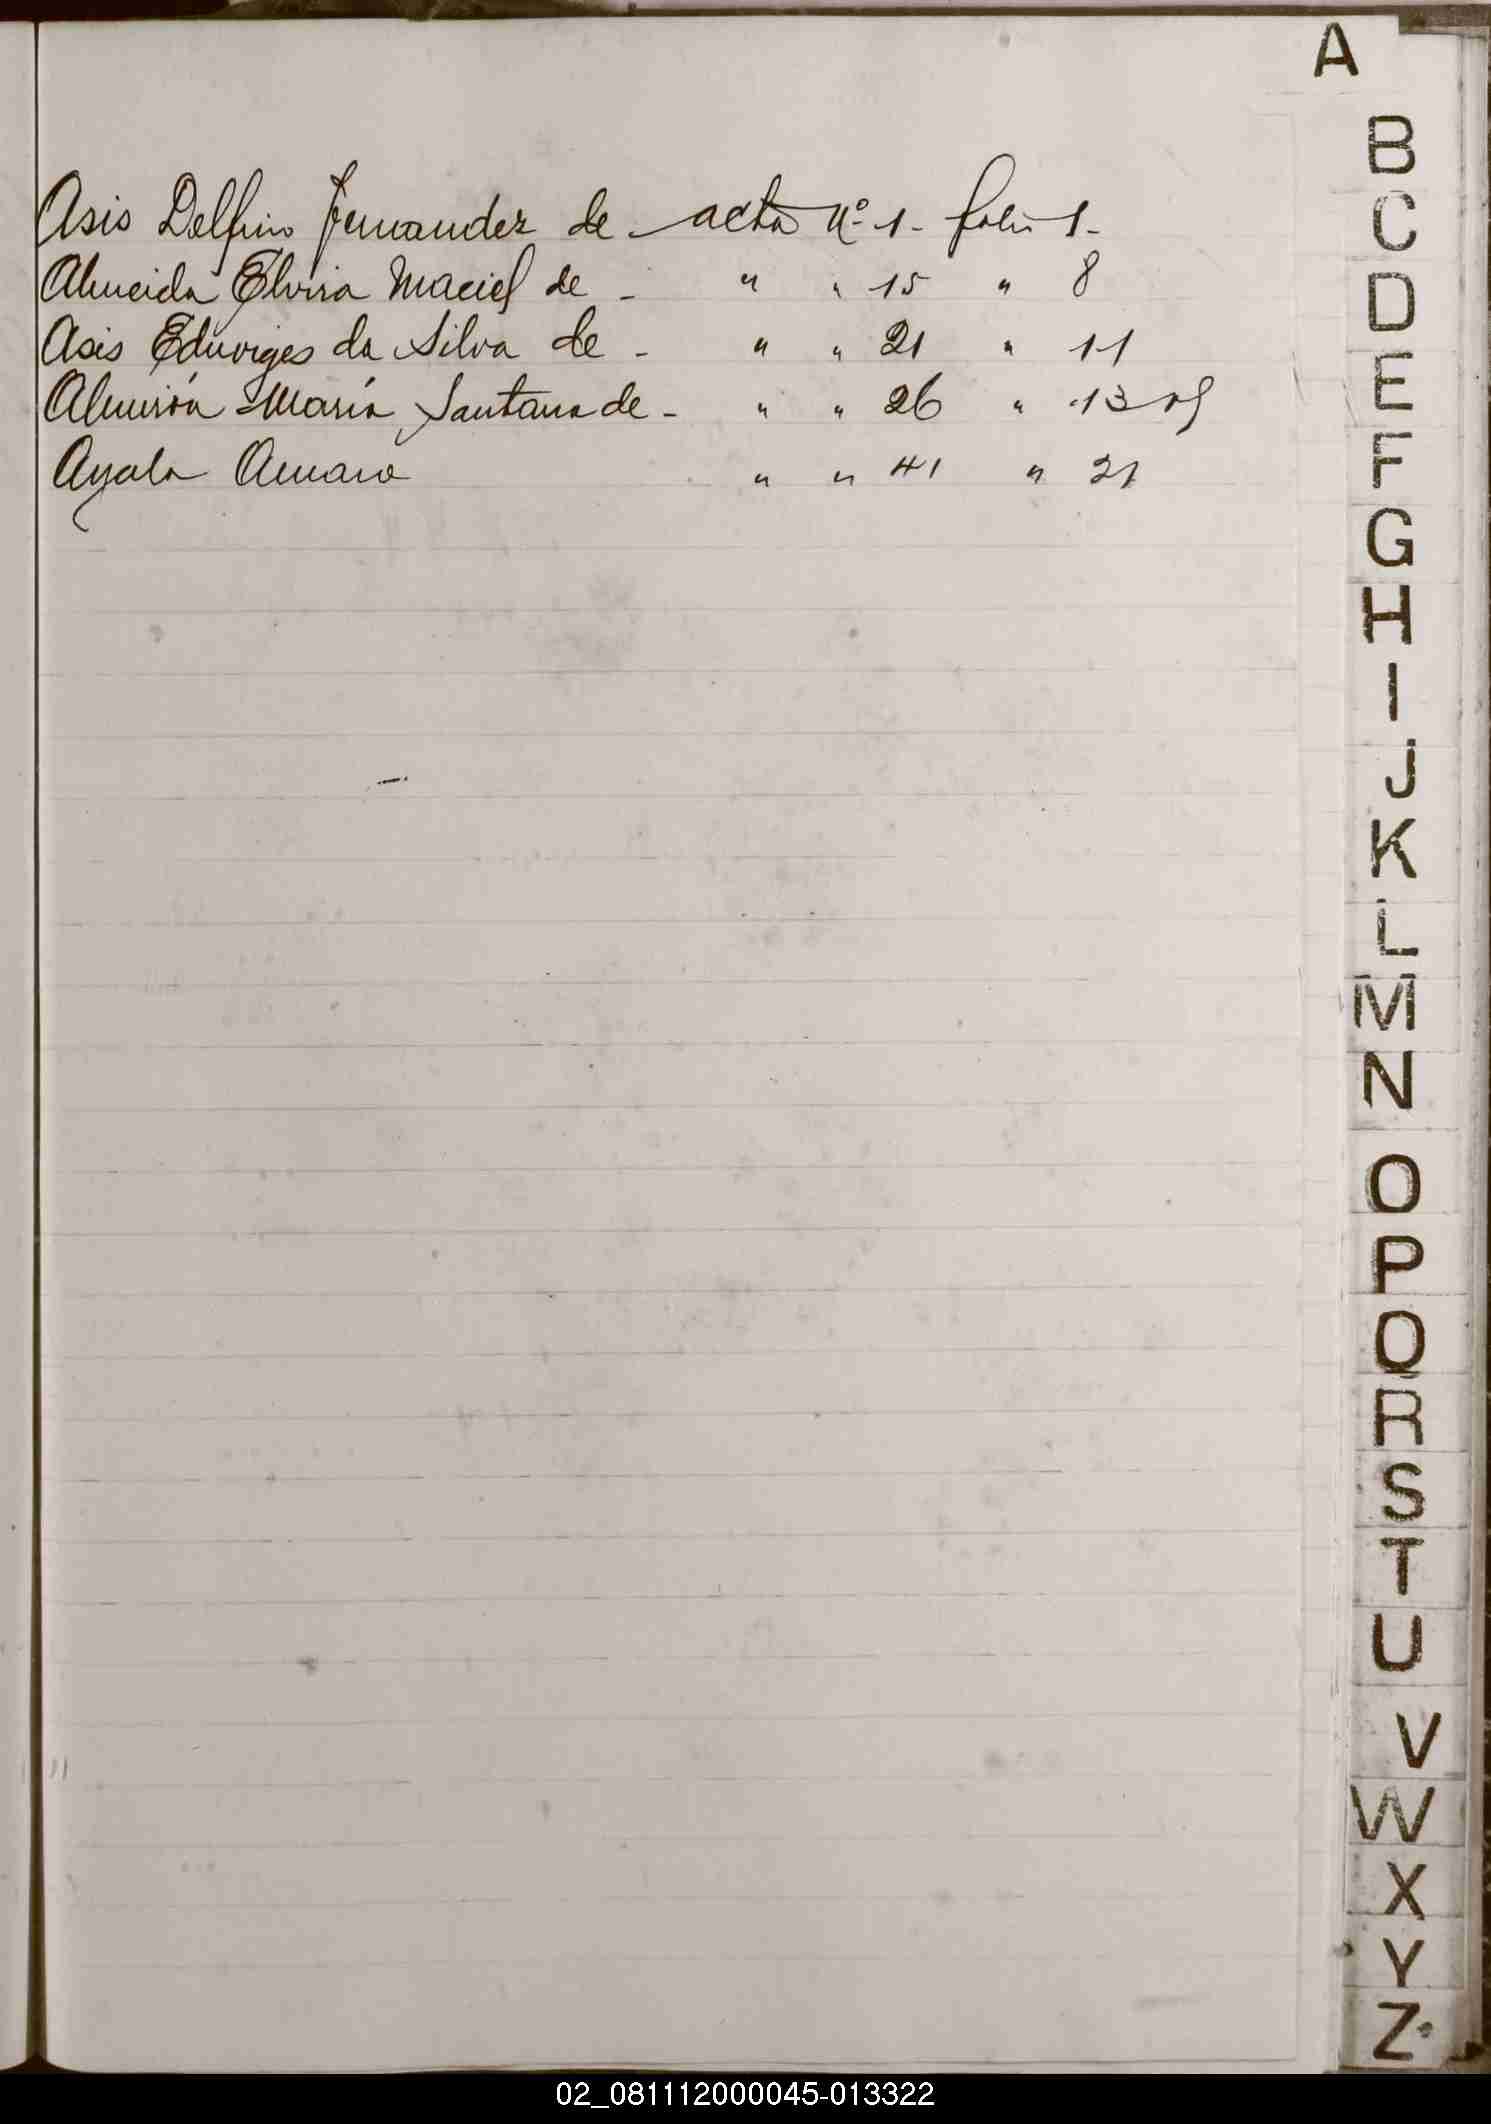 A
Asis Delfino Fernandez de acta Nº 1- folio 1-
Almeida Elvira Maciel de - " " 15 " 8
Asis Eduviges da Silva de - " " 21 " 11
Almirón María Santana de - " " 26 " 13
Ayala Amaro " " 41 " 21
B
C
D
E
F
G
H
I
J
K
L
M
N
O
P
Q
R
S
T
U
V
W
X
Y
Z
02_081112000045-013322